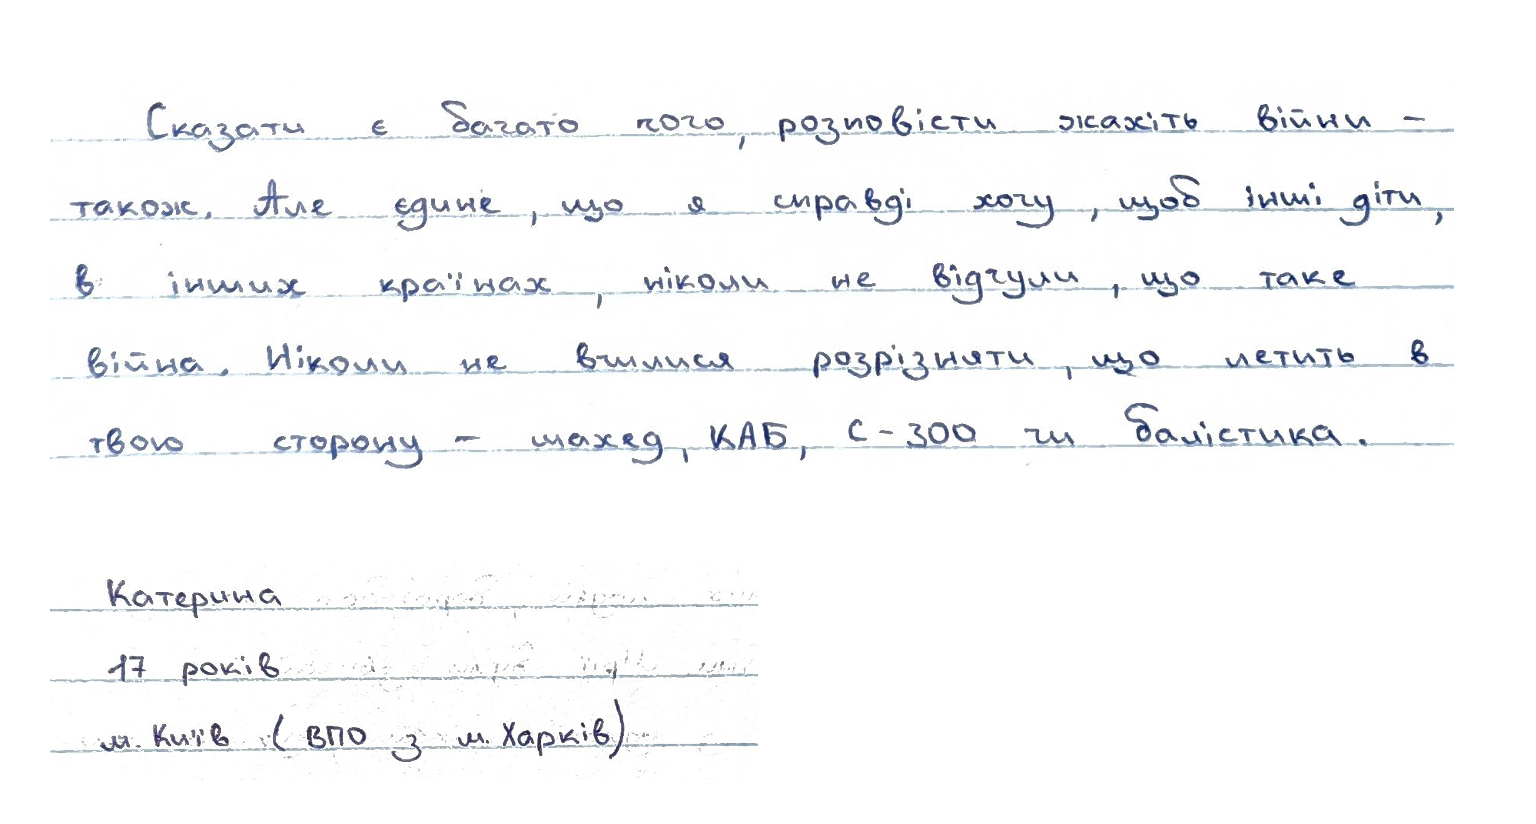 Сказати є багато чого, розповісти жахіть війни –
також. Але єдине, що я справді хочу, щоб інші діти,
в інших країнах, ніколи не відчули, що таке
війна. Ніколи не вчилися розрізняти, що летить в
твою сторону – шахед, КАБ, С-300 чи балістика.
Катерина
17 років
м. Київ (ВПО з м. Харків)